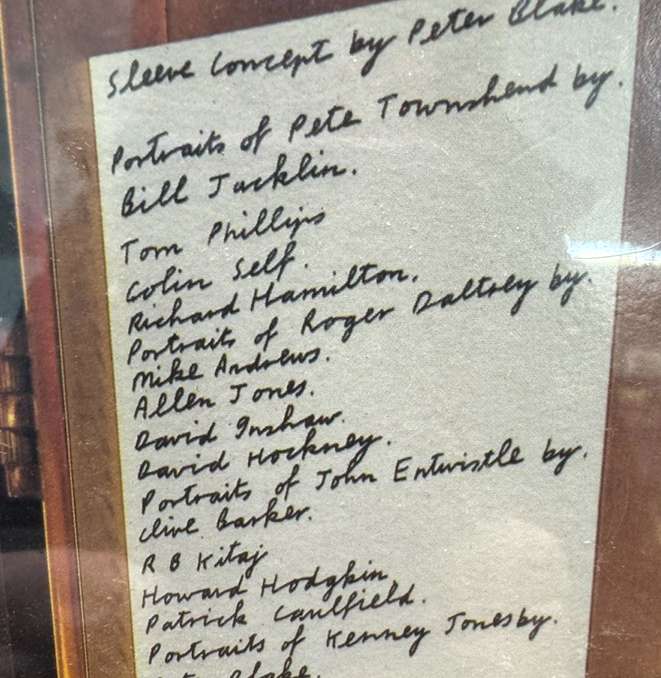 Sleeve Concept by Peter Blake.
Portraits of Pete Townshend by.
Bill Jacklin.
Tom Phillips
Colin Self.
Richard Hamilton.
Portraits of Roger Daltrey by.
Mike Andrews.
Allen Jones.
David Inshaw.
David Hockney.
Portraits of John Entwistle by.
Clive Barker.
R B Kitaj
Howard Hodgkin
Patrick Caulfield.
Portraits of Kenney Jones by.
Blake.